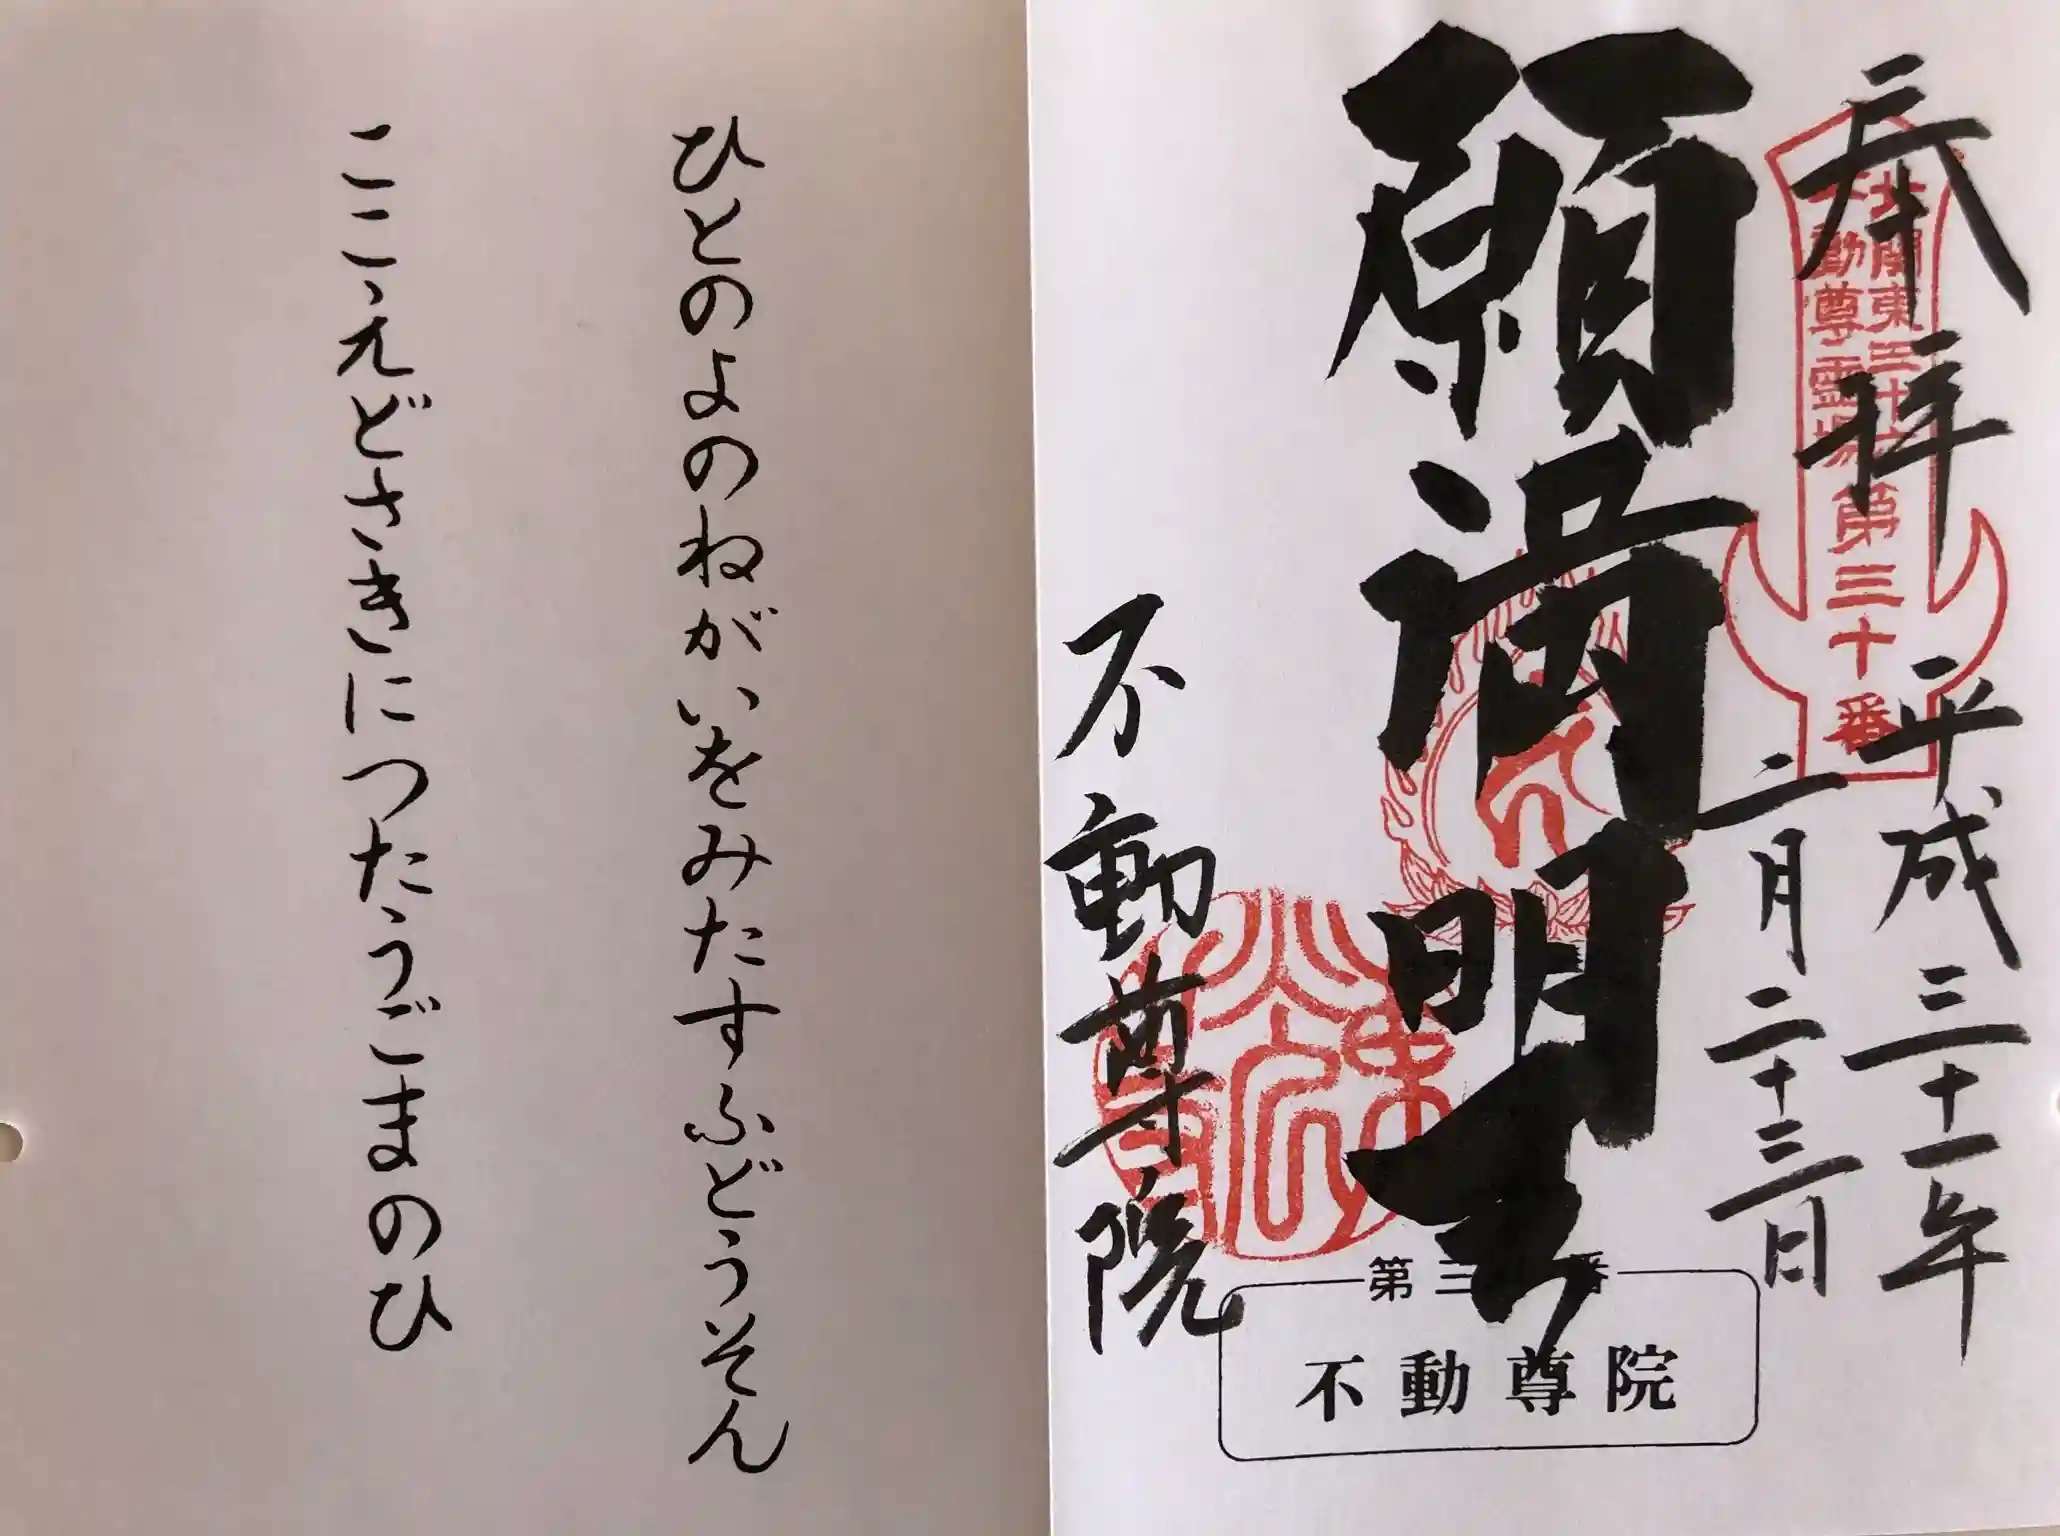 奉拝
平成三十一年
二月二十三日
北関東三十六
不動尊霊場
第三十番
願満明王
不動尊院
第三十番
不動尊院
ひとのよのねがいをみたすふどうそん
ここえどさきにつたうごまのひ